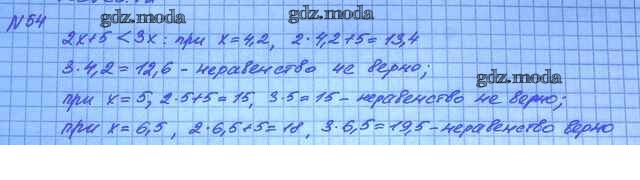 N54
gdz.mozg.me
2x+5 < 3x: при x=4,2, 2·4,2+5=13,4
3·4,2=12,6 - неравенство не верно;
gdz.mozg.me
при x=5, 2·5+5=15, 3·5=15 - неравенство не верно;
при x=6,5, 2·6,5+5=18, 3·6,5=19,5 - неравенство верно